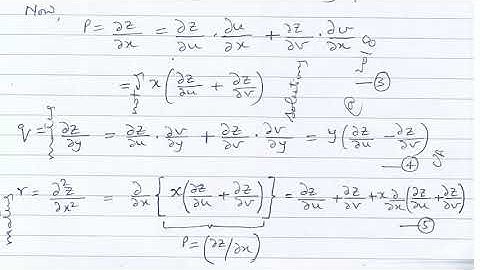 Now,
P = ∂z/∂x = ∂z/∂u · ∂u/∂x + ∂z/∂v · ∂v/∂x
= x(∂z/∂u + ∂z/∂v) —③
q = ∂z/∂y = ∂z/∂u · ∂v/∂y + ∂z/∂v · ∂v/∂y = y(∂z/∂u - ∂z/∂v) —④
r = ∂²z/∂x² = ∂/∂x {x(∂z/∂u + ∂z/∂v)} = ∂z/∂u + ∂z/∂v + x ∂/∂x(∂z/∂u + ∂z/∂v) —⑤
P = (∂z/∂x)